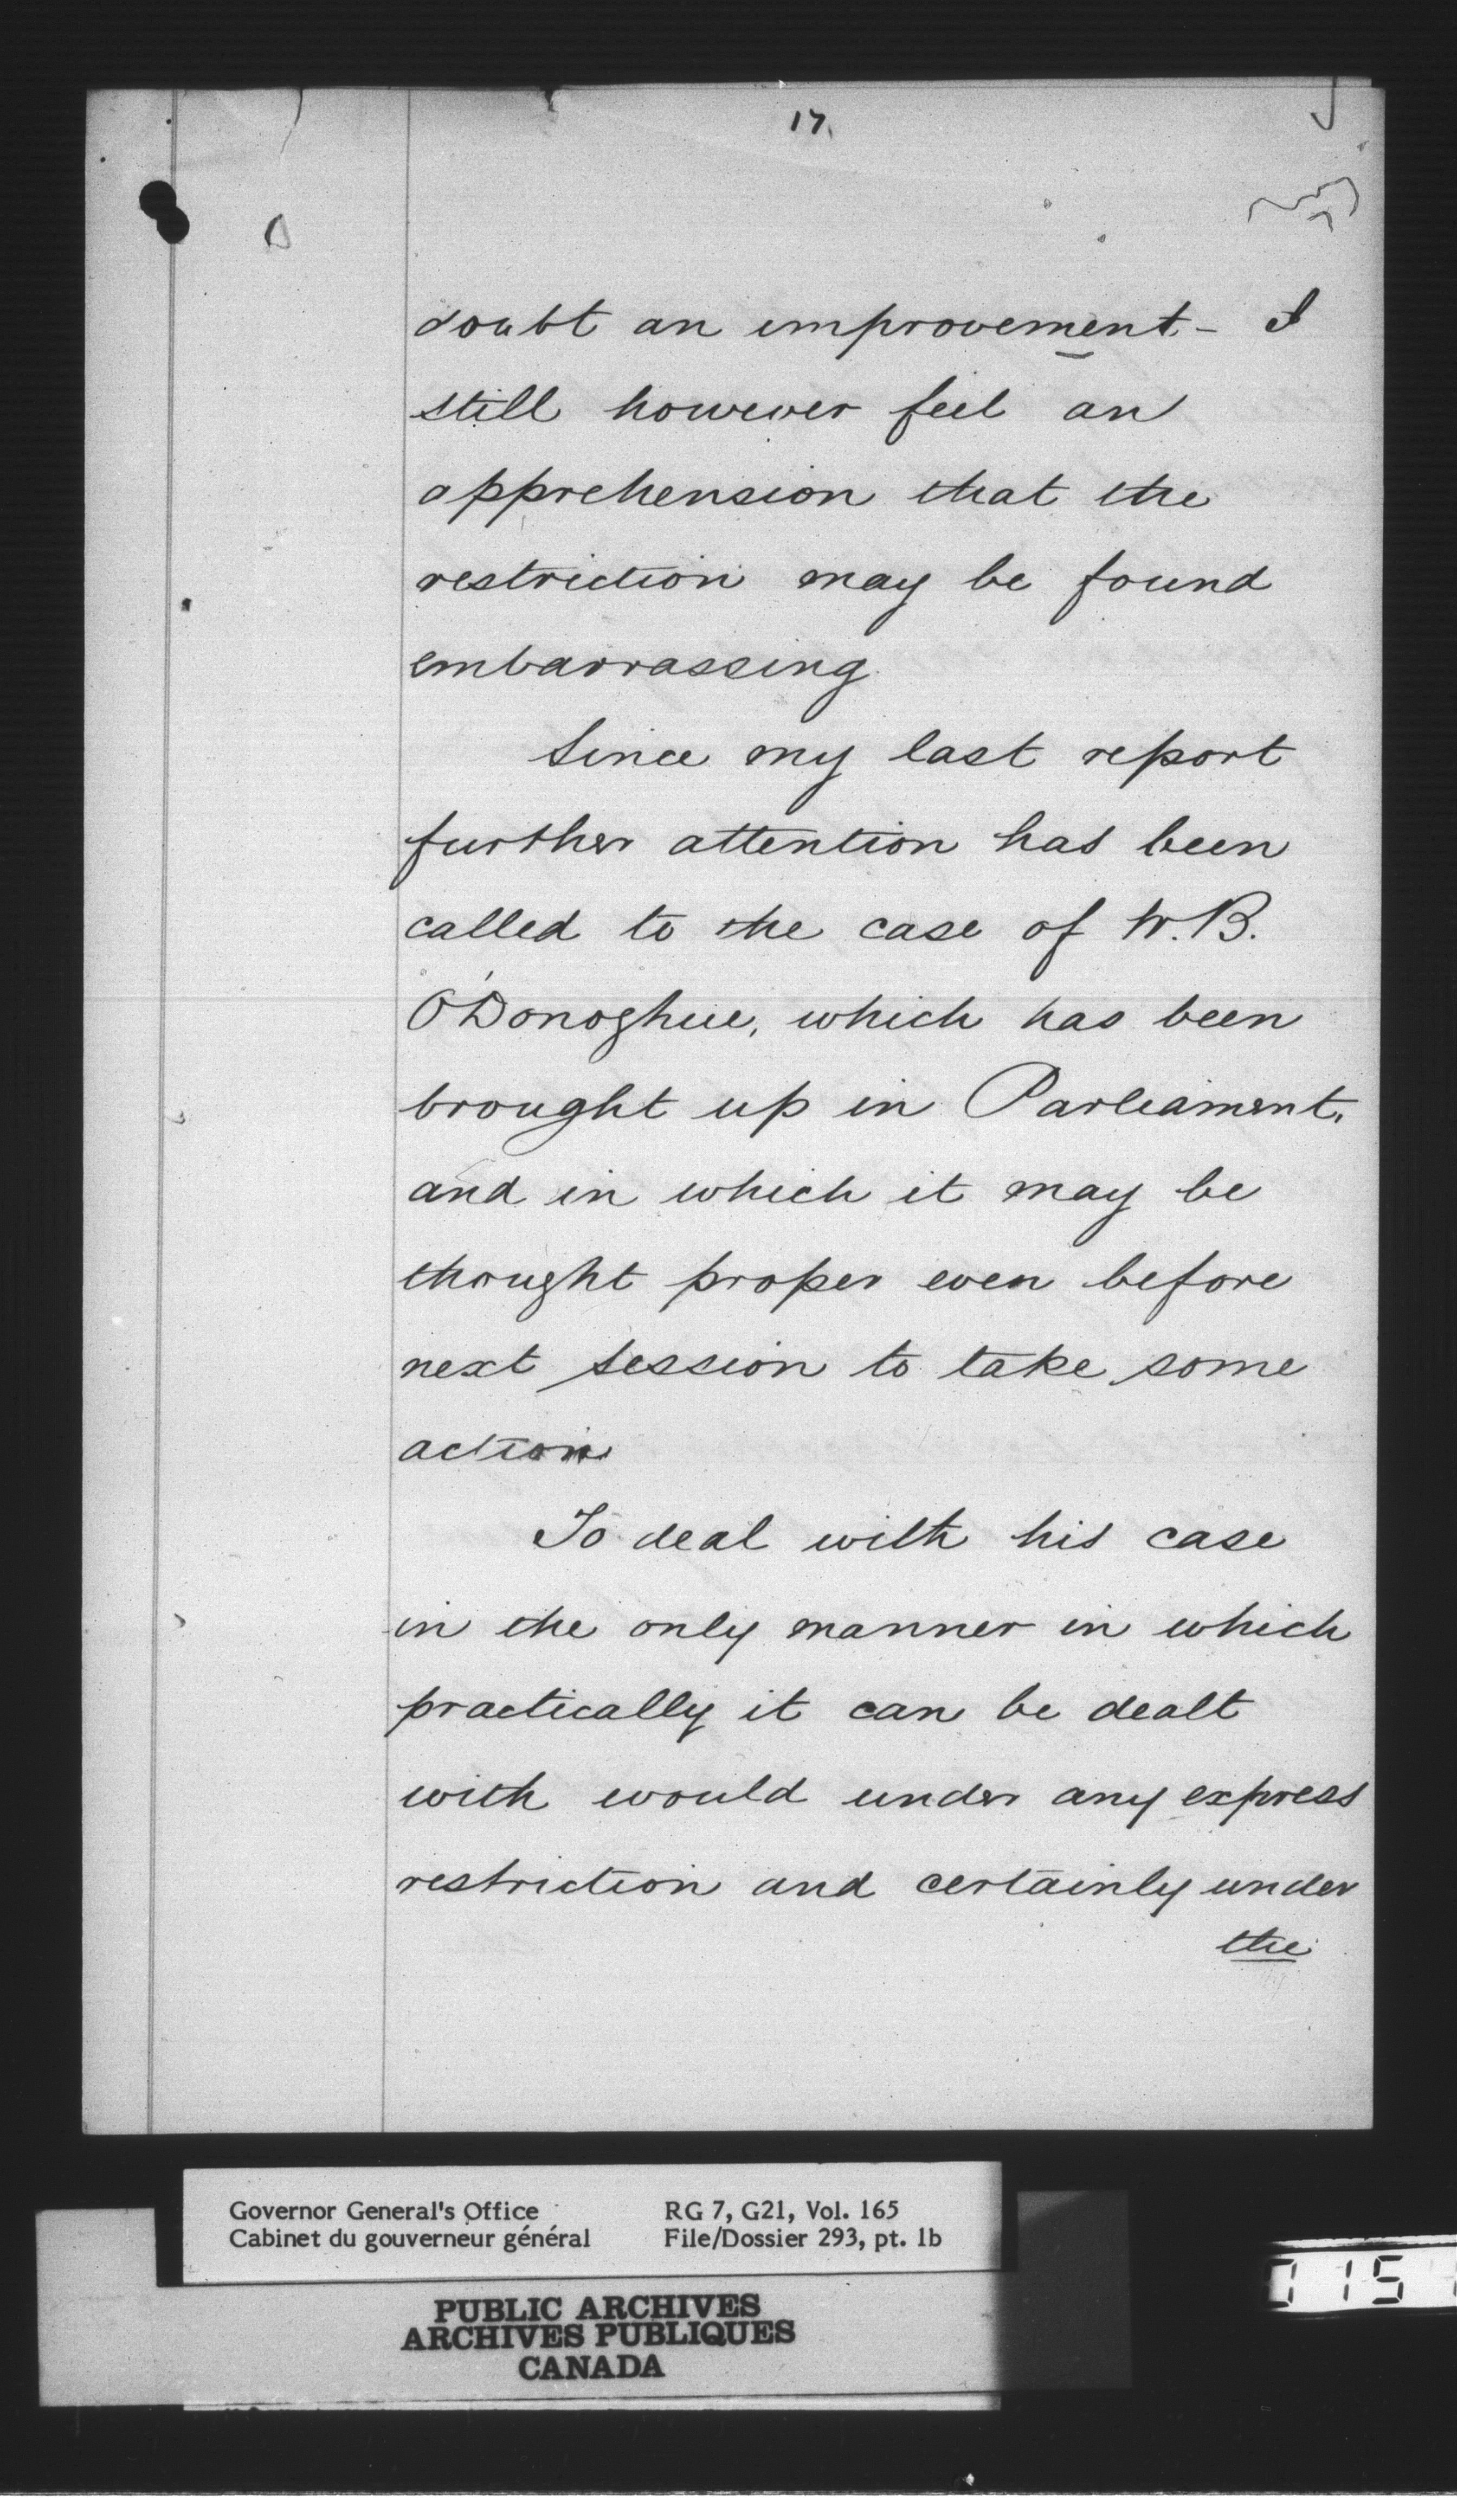 17.
doubt an improvement. - I
still however feel an
apprehension that the
restriction may be found
embarrassing.
Since my last report
further attention has been
called to the case of W. B.
O'Donoghue, which has been
brought up in Parliament,
and in which it may be
thought proper even before
next session to take some
action
To deal with his case
in the only manner in which
practically it can be dealt
with would under any express
restriction and certainly under
the
Governor General's Office RG 7, G21, Vol. 165
Cabinet du gouverneur général File/Dossier 293, pt. 1b
PUBLIC ARCHIVES
ARCHIVES PUBLIQUES
CANADA